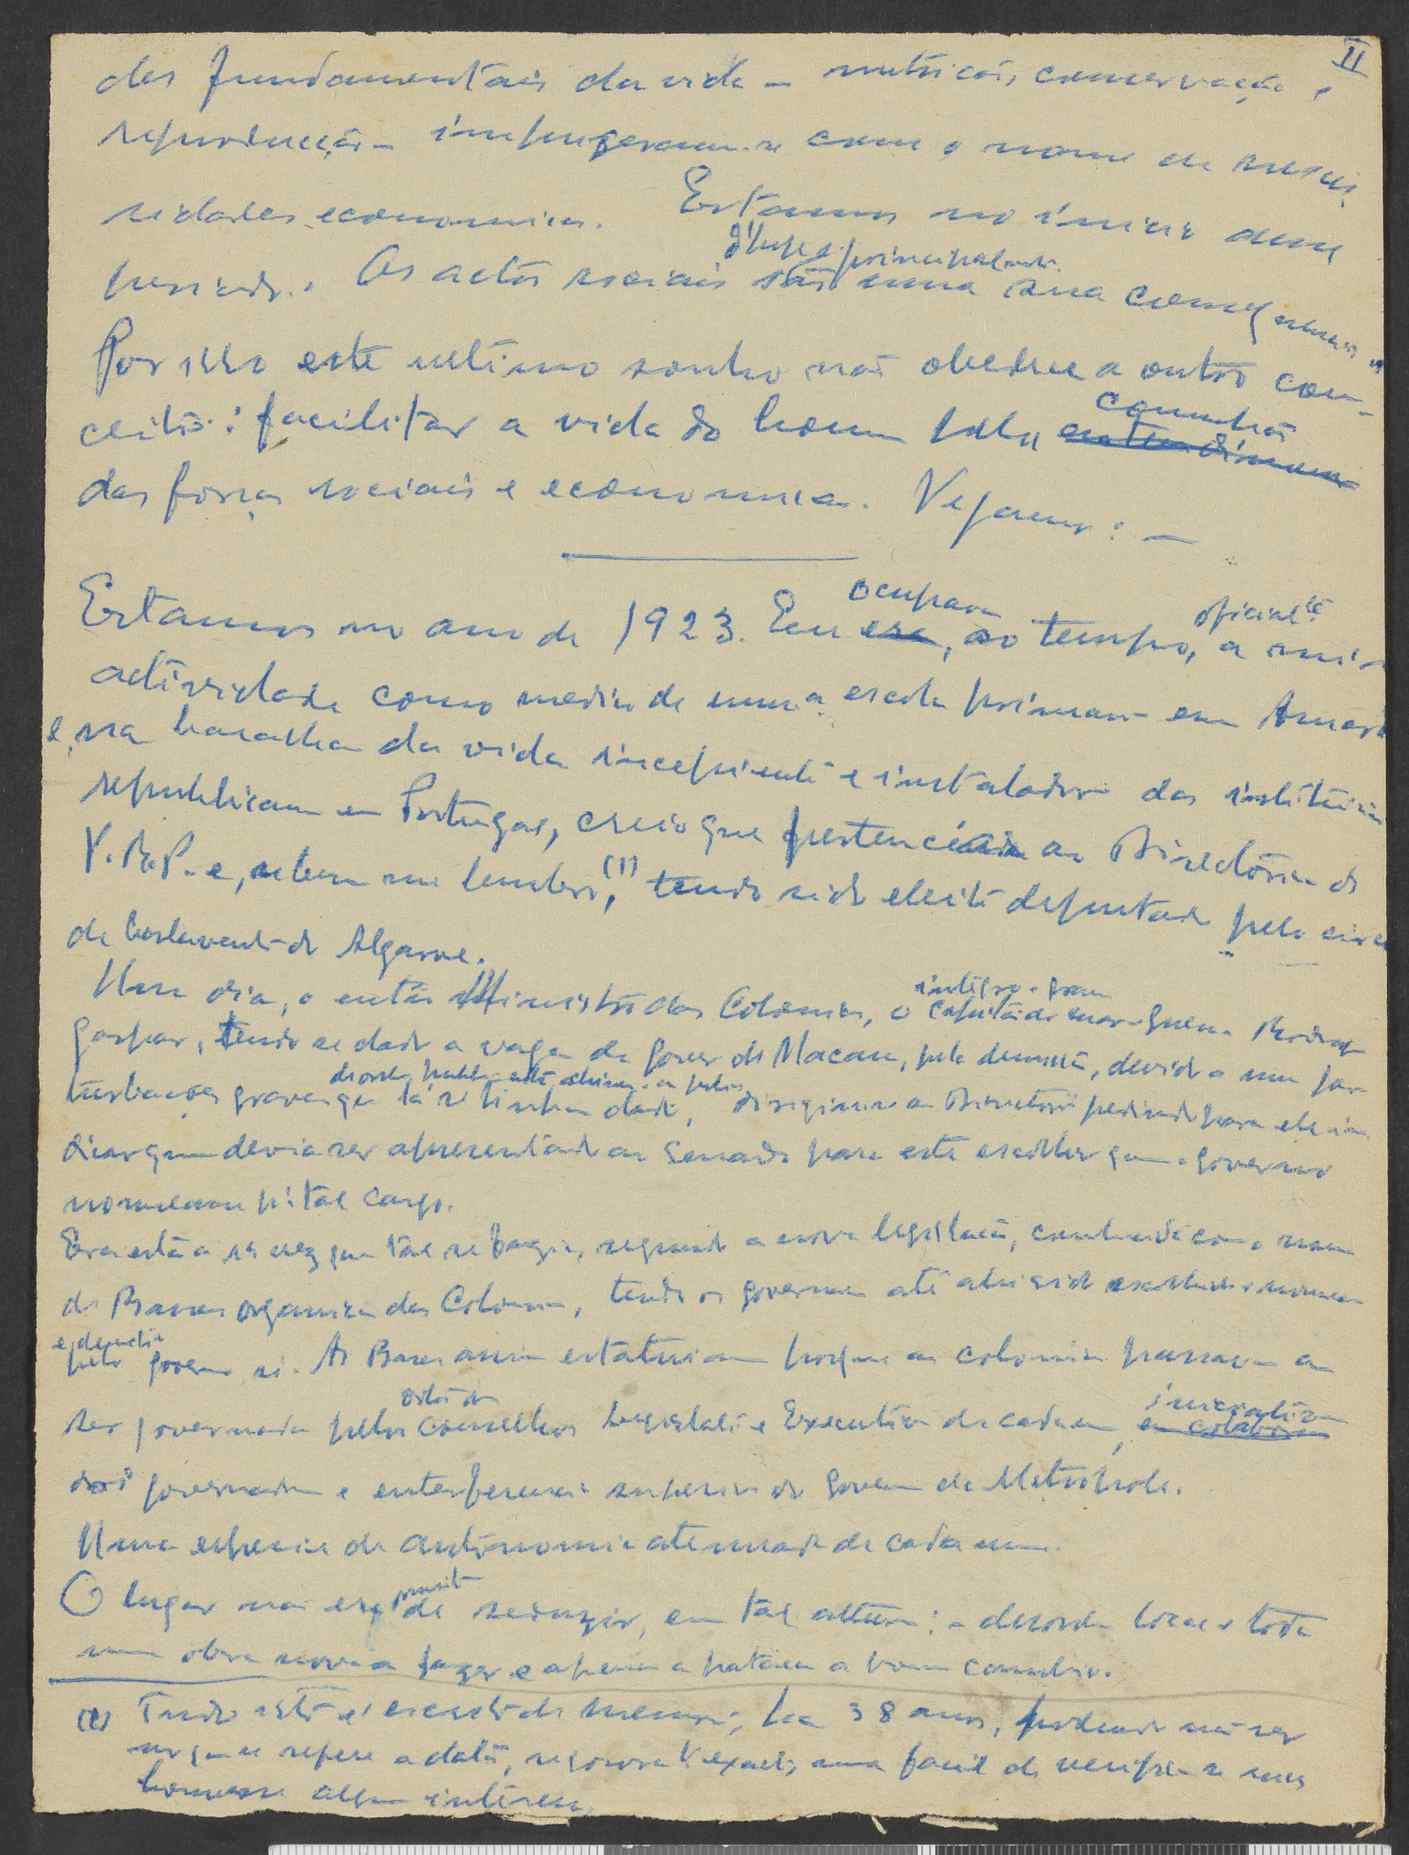 II
des fundamentais da vida – nutrição, conservação e
reproducção – impuzeram-se com o nome de neces
sidades economicas. Estamos no inicio desse
periodo. Os actos sociais são principalmente uma sua consequencia
Por isso este ultimo sonho não obedece a outro con-
ceito: facilitar a vida do homem pela comunhão entendimento
das forças sociais e economicas. Vejamos: –
Estamos no ano de 1923. Eu era ocupava, ao tempo, a oficial
actividade como medico de uma escola primaria em
e, na da vida incipiente e instaladora das instituições
republicanas em Portugal, creio que pertencia ao Directorio do
P.R.P. e, se bem me lembro, (1) tendo sido eleito deputado pelo
de Barlavento do Algarve.
Um dia, o então Ministro das Colonias, o capitão de mar e guerra Rodrigues
Gaspar, tendo-se dado a vaga de Gover de Macau, pela demissão, devido a umas per
turbações graves que lá se tinham dado, dirigiu-se ao Directorio pedindo para ele in
dicar quem devia ser apresentado ao Senado para este escolher quem o governo
nomeava p.ª tal cargo.
Era esta a 1ª vez que tal se fazia, segundo a nova legislação, conhecida com o nome
de Bases organicas das Colonias, tendo os governos até ali sido escolhidos e nomeados
e demitidos pelo governo só. As Bases assim estatuiam porque as colonias passavam a
ser governadas pelos conselhos Legislativo e Executivo de cada uma, iniciativa em colaboração
do governador e interferencia superior do Governo da Metropole.
Uma especie de autonomia atenuada de cada uma.
O lugar não era de seduzir, em tal altura: a desordem local e toda
uma obra nova a fazer e apenas a pataca a bom cambio.
(1) Tudo isto é escrito de memoria, ha 38 anos, podendo não ser
no que se refere a data, rigorosa e exacto, mas facil de verificar se nisso
houvesse algum interesse.